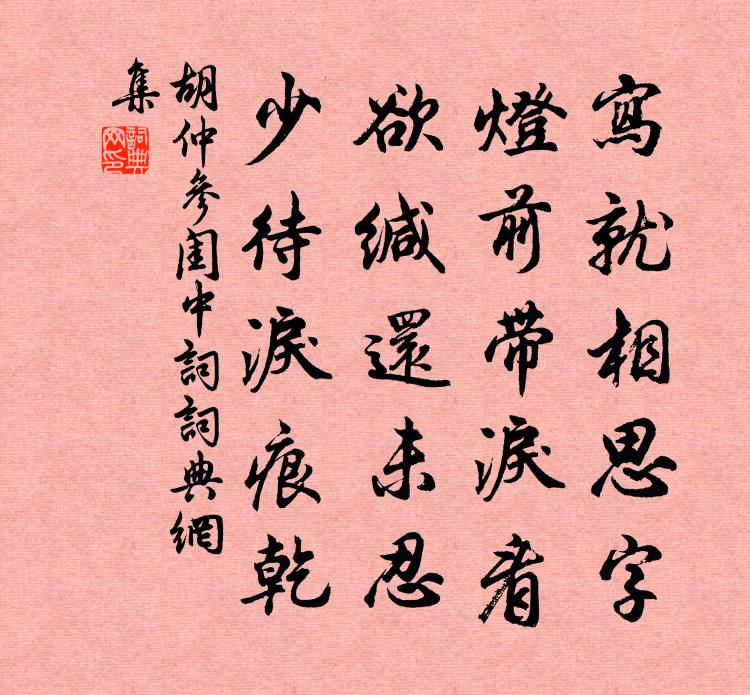 寫就相思字
燈前帶淚看
欲緘還未忍
少待淚痕乾
胡仲參閨中詞詞典網
集
詞典
网印